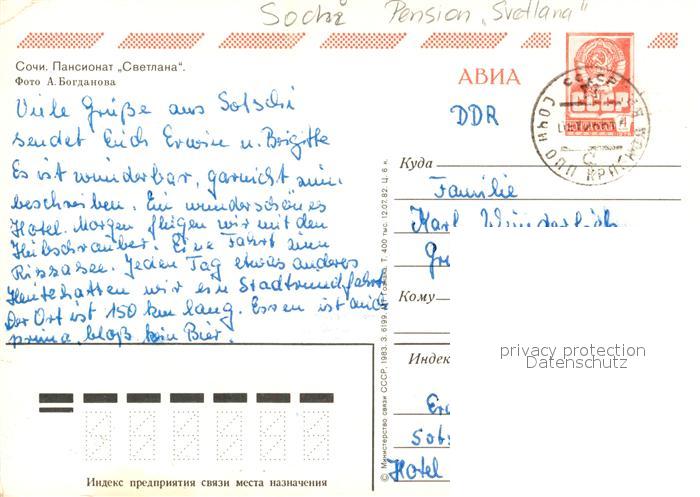 Sochi Pension „Svetlana"
Сочи. Пансионат „Светлана".
Фото А. Богданова
АВИА
DDR
Viele Grüße aus Sotschi
sendet Euch Erwin u. Brigitte
Es ist wunderbar, garnicht zum
beschreiben. Ein wunderschönes
Hotel. Morgen fliegen wir mit den
Hubschrauber. Eine Fahrt zum
Rizzasee. Jeden Tag etwas anderes
Heute hatten wir ein Stadtrundfahrt
Der Ort ist 150 km lang. Essen ist auch
prima, bloß kein Bier.
Куда
Familie
Karl Wunderlich
Gr
Кому
Индек
privacy protection
Datenschutz
Er
Sots
Hotel
© Министерство связи СССР, 1983. З. 6199. Т. 400 тыс. 12.07.82. Ц. 6 к.
Индекс предприятия связи места назначения
СССР
СОЧИ